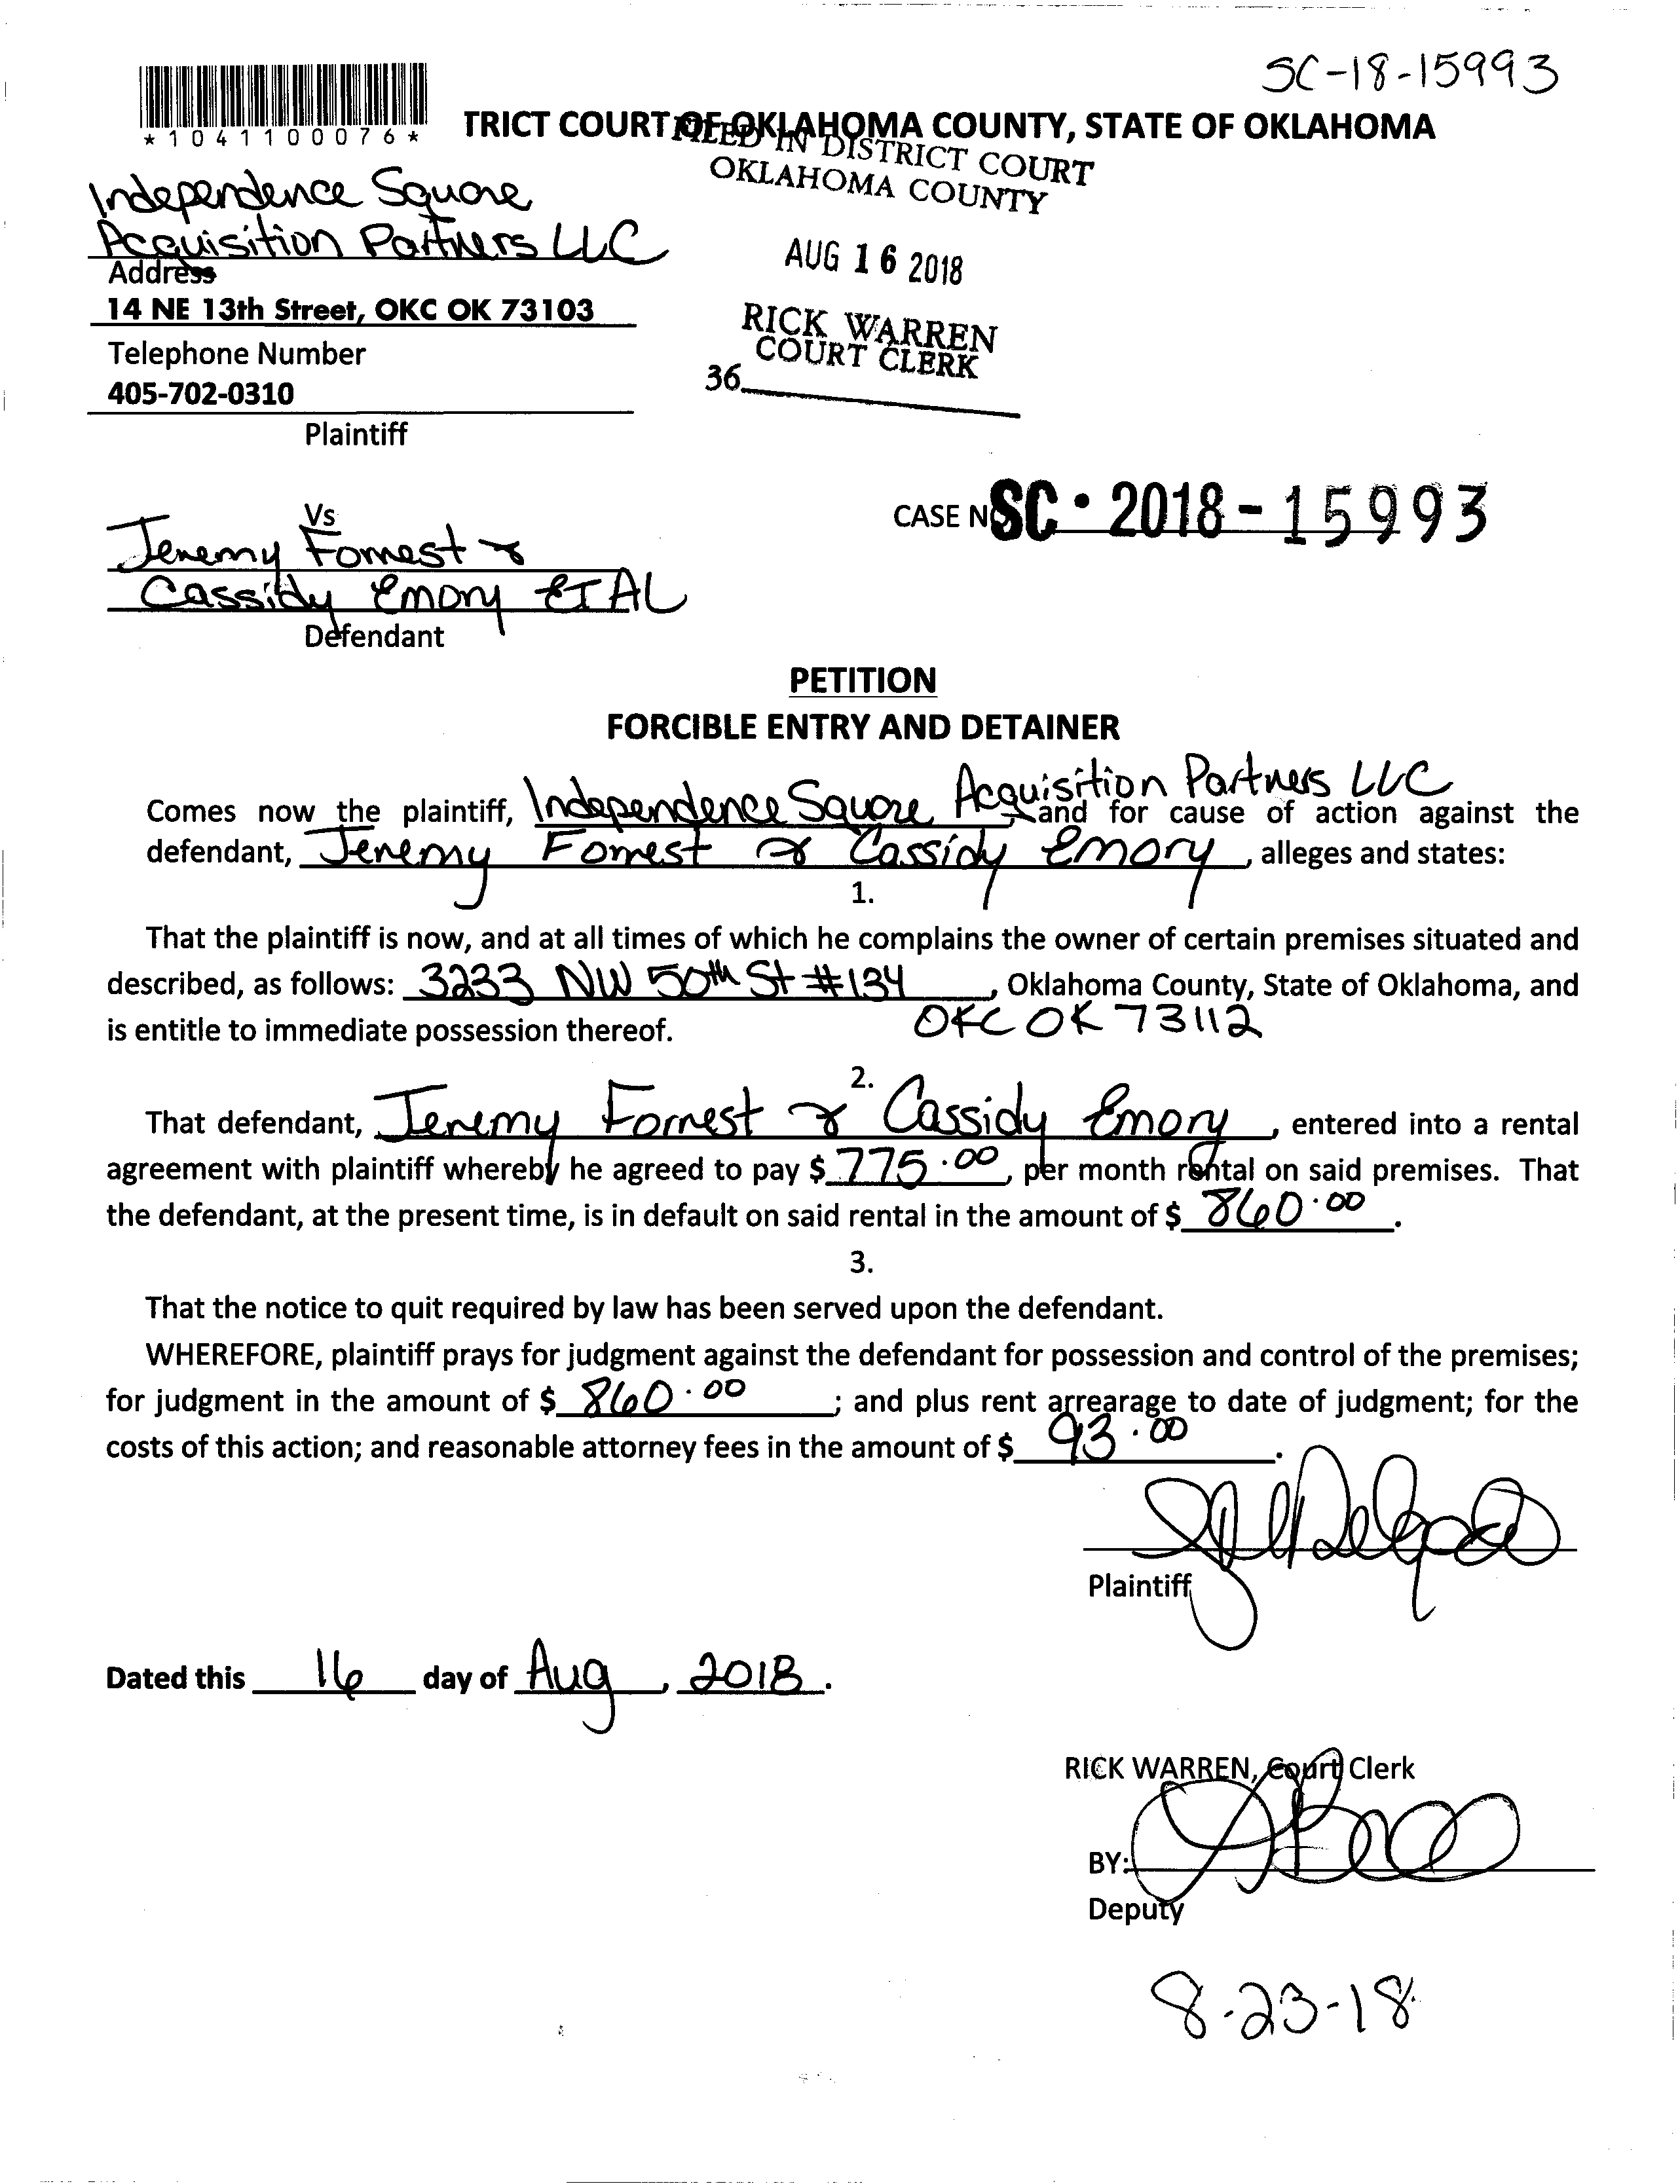 SC-18-15993
*1041100076*
TRICT COURT OF OKLAHOMA COUNTY, STATE OF OKLAHOMA
FILED IN DISTRICT COURT
OKLAHOMA COUNTY
Independence Square
Acquisition Partners LLC
Address
AUG 16 2018
14 NE 13th Street, OKC OK 73103
RICK WARREN
COURT CLERK
Telephone Number
36
405-702-0310
Plaintiff
Vs
CASE NO SC • 2018 - 15993
Jeremy Forrest &
Cassidy Emory ET AL
Defendant
PETITION
FORCIBLE ENTRY AND DETAINER
Comes now the plaintiff, Independence Square Acquisition Partners LLC, and for cause of action against the
defendant, Jeremy Forrest & Cassidy Emory, alleges and states:
1.
That the plaintiff is now, and at all times of which he complains the owner of certain premises situated and
described, as follows: 3233 NW 50th St #134, Oklahoma County, State of Oklahoma, and
is entitle to immediate possession thereof. OKC OK 73112
2.
That defendant, Jeremy Forrest & Cassidy Emory, entered into a rental
agreement with plaintiff whereby he agreed to pay $ 775.00, per month rental on said premises. That
the defendant, at the present time, is in default on said rental in the amount of $ 860.00.
3.
That the notice to quit required by law has been served upon the defendant.
WHEREFORE, plaintiff prays for judgment against the defendant for possession and control of the premises;
for judgment in the amount of $ 860.00; and plus rent arrearage to date of judgment; for the
costs of this action; and reasonable attorney fees in the amount of $ 93.00.
Plaintiff
Dated this 16 day of Aug, 2018.
RICK WARREN, Court Clerk
BY:
Deputy
8-23-18